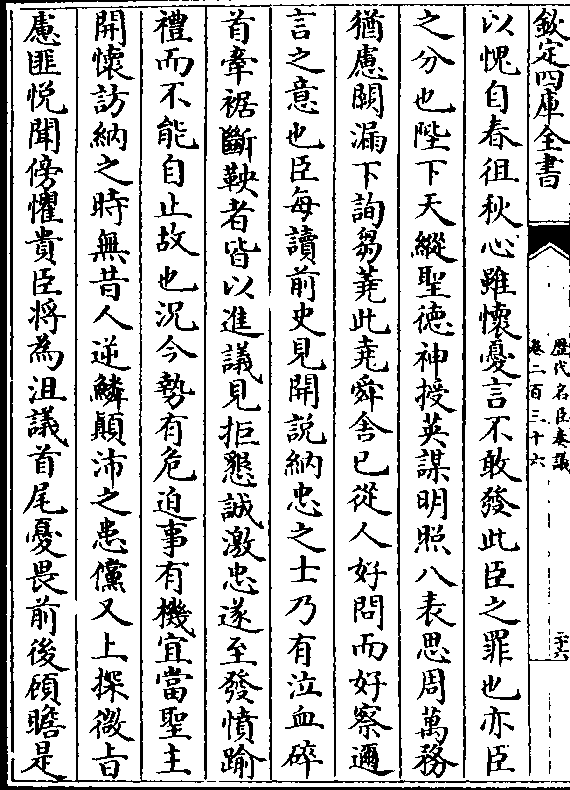 欽定四庫全書
歴代名臣奏議
卷二百三十六
二十六
以愧自春徂秋心雖懷憂言不敢發此臣之罪也亦臣
之分也陛下天縱聖德神授英謀明照八表思周萬務
猶慮闕漏下詢芻蕘此堯舜舍已從人好問而好察邇
言之意也臣每讀前史見開說納忠之士乃有泣血碎
首牽裾斷鞅者皆以進議見拒懇誠激忠遂至發憤踰
禮而不能自止故也況今勢有危迫事有機宜當聖主
開懷訪納之時無昔人逆鱗顛沛之患儻又上探微旨
慮匪悦聞傍懼貴臣將為沮議首尾憂畏前後顧瞻是